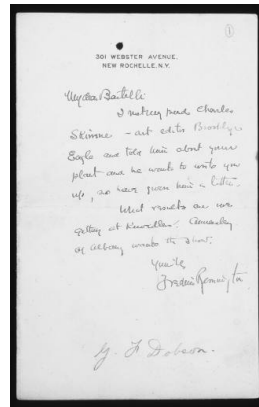 ①
301 WEBSTER AVENUE,
NEW ROCHELLE, N.Y.
My dear Bertelli
I met my friend Charles
Skinner – art editor Brooklyn
Eagle and told him about your
plant and he wants to write you
up, so have given him a letter.
What results are we
getting at Knoedler. Annesley
of Albany wants the show.
Yours
Frederic Remington
F Dobson.